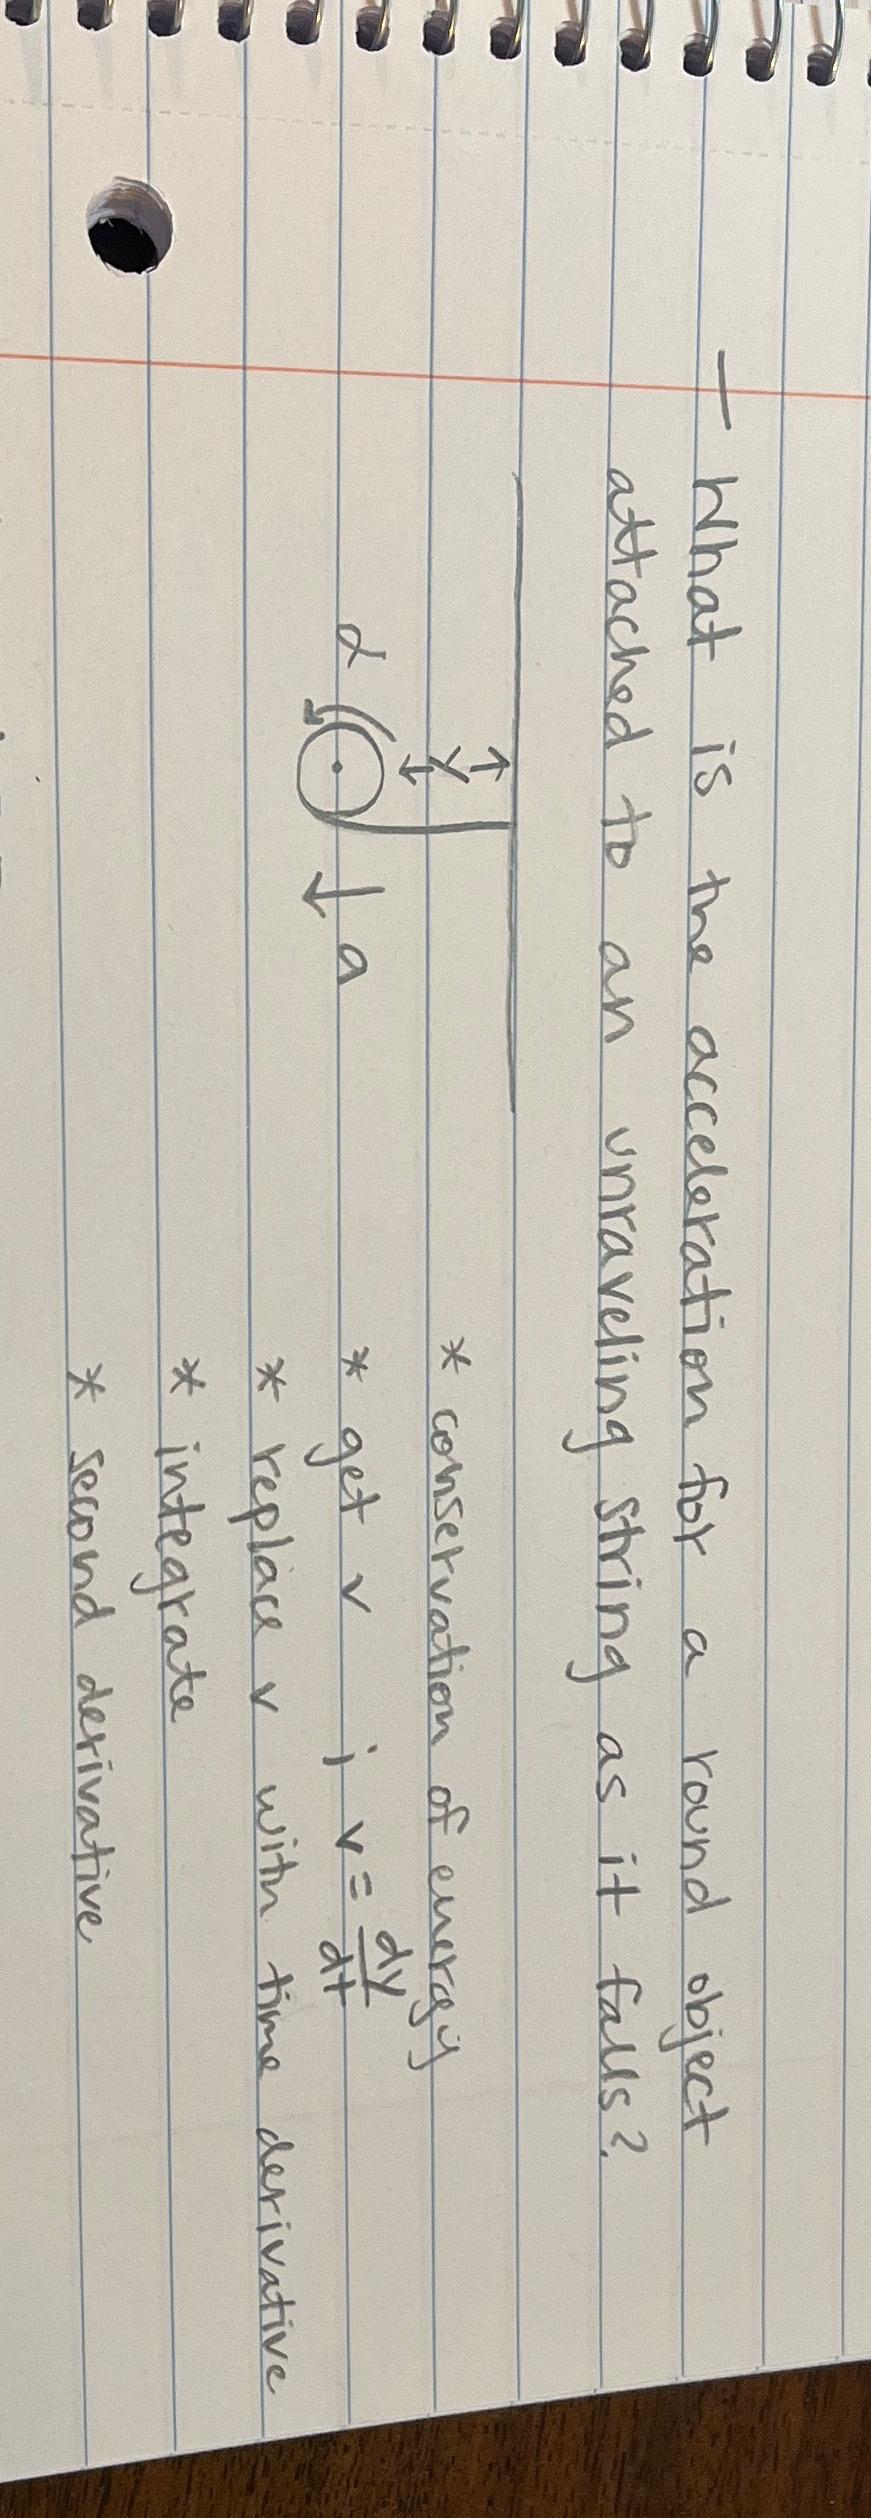 — What is the acceleration for a round object
attached to an unraveling string as it falls?
* conservation of energy
y
* get v ; v = dy/dt
α
a
* replace v with time derivative
* integrate
* second derivative